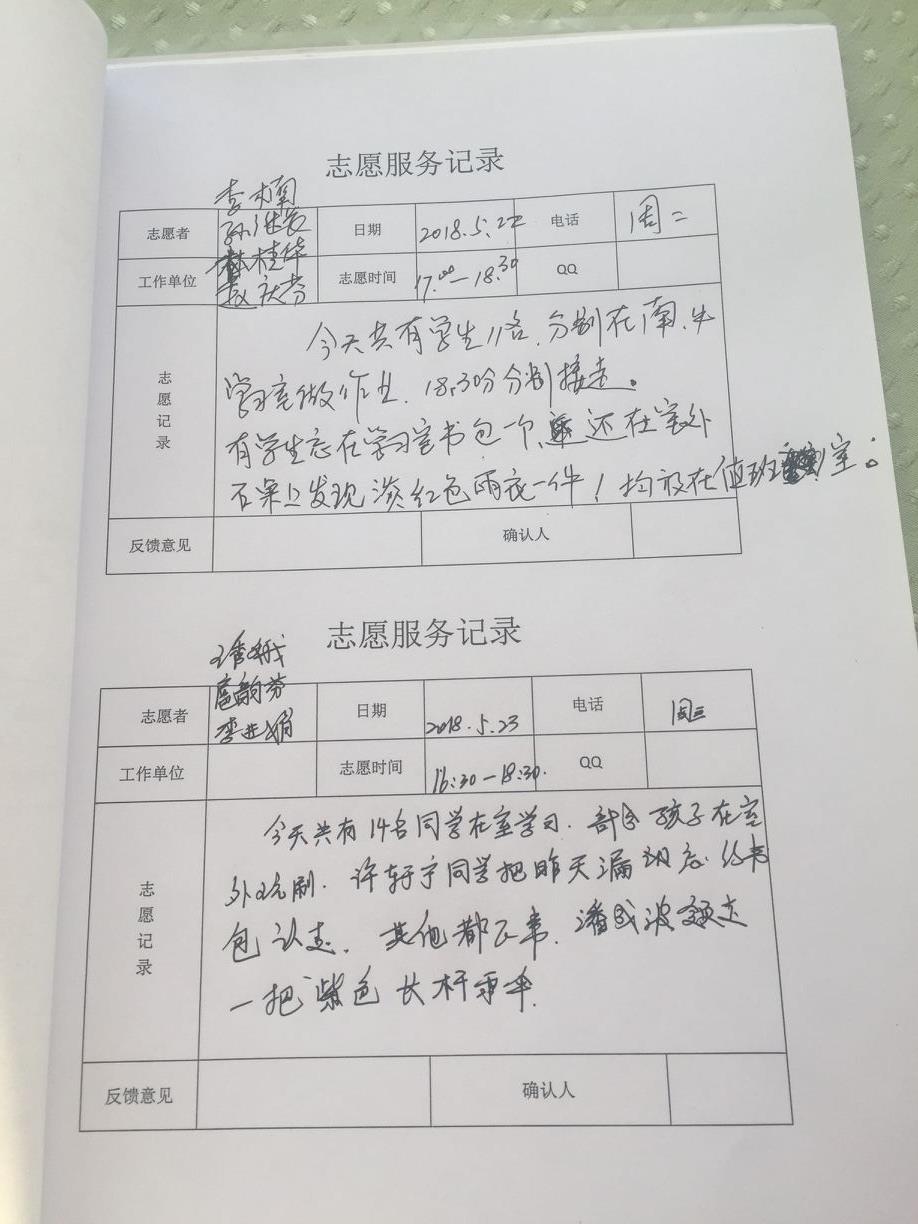 志愿服务记录
李楠
志愿者 日期 2018.5.22 电话 周二
林桂华
工作单位 赵庆芬 志愿时间 17:00—18:30 QQ
志愿记录
今天共有学生11名,分别在南、
学习室做作业,18:30分分别接走。
有学生忘在学习室书包一个,还在室外
石桌上发现淡红色雨衣一件!均放在值班室。
反馈意见 确认人
志愿服务记录
志愿者 日期 2018.5.23 电话 周三
李进娟
工作单位 志愿时间 16:30—18:30. QQ
志愿记录
今天共有14名同学在室学习.部分孩子在室
外玩刷.许轩宇同学把昨天漏
包认走.其他都正常.潘 波 走
一把紫色长杆雨伞.
反馈意见 确认人